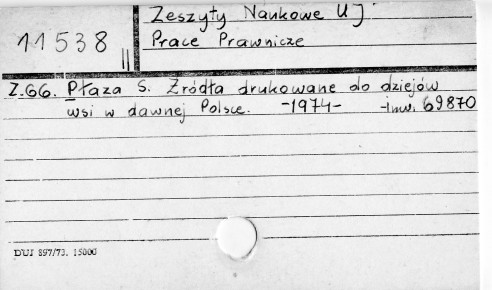 Zeszyty Naukowe UJ
11538 II Prace Prawnicze
Z.66. Płaza S. Źródła drukowane do dziejów
wsi w dawnej Polsce. -1974- inw. 69870
DUJ 897/73. 15000